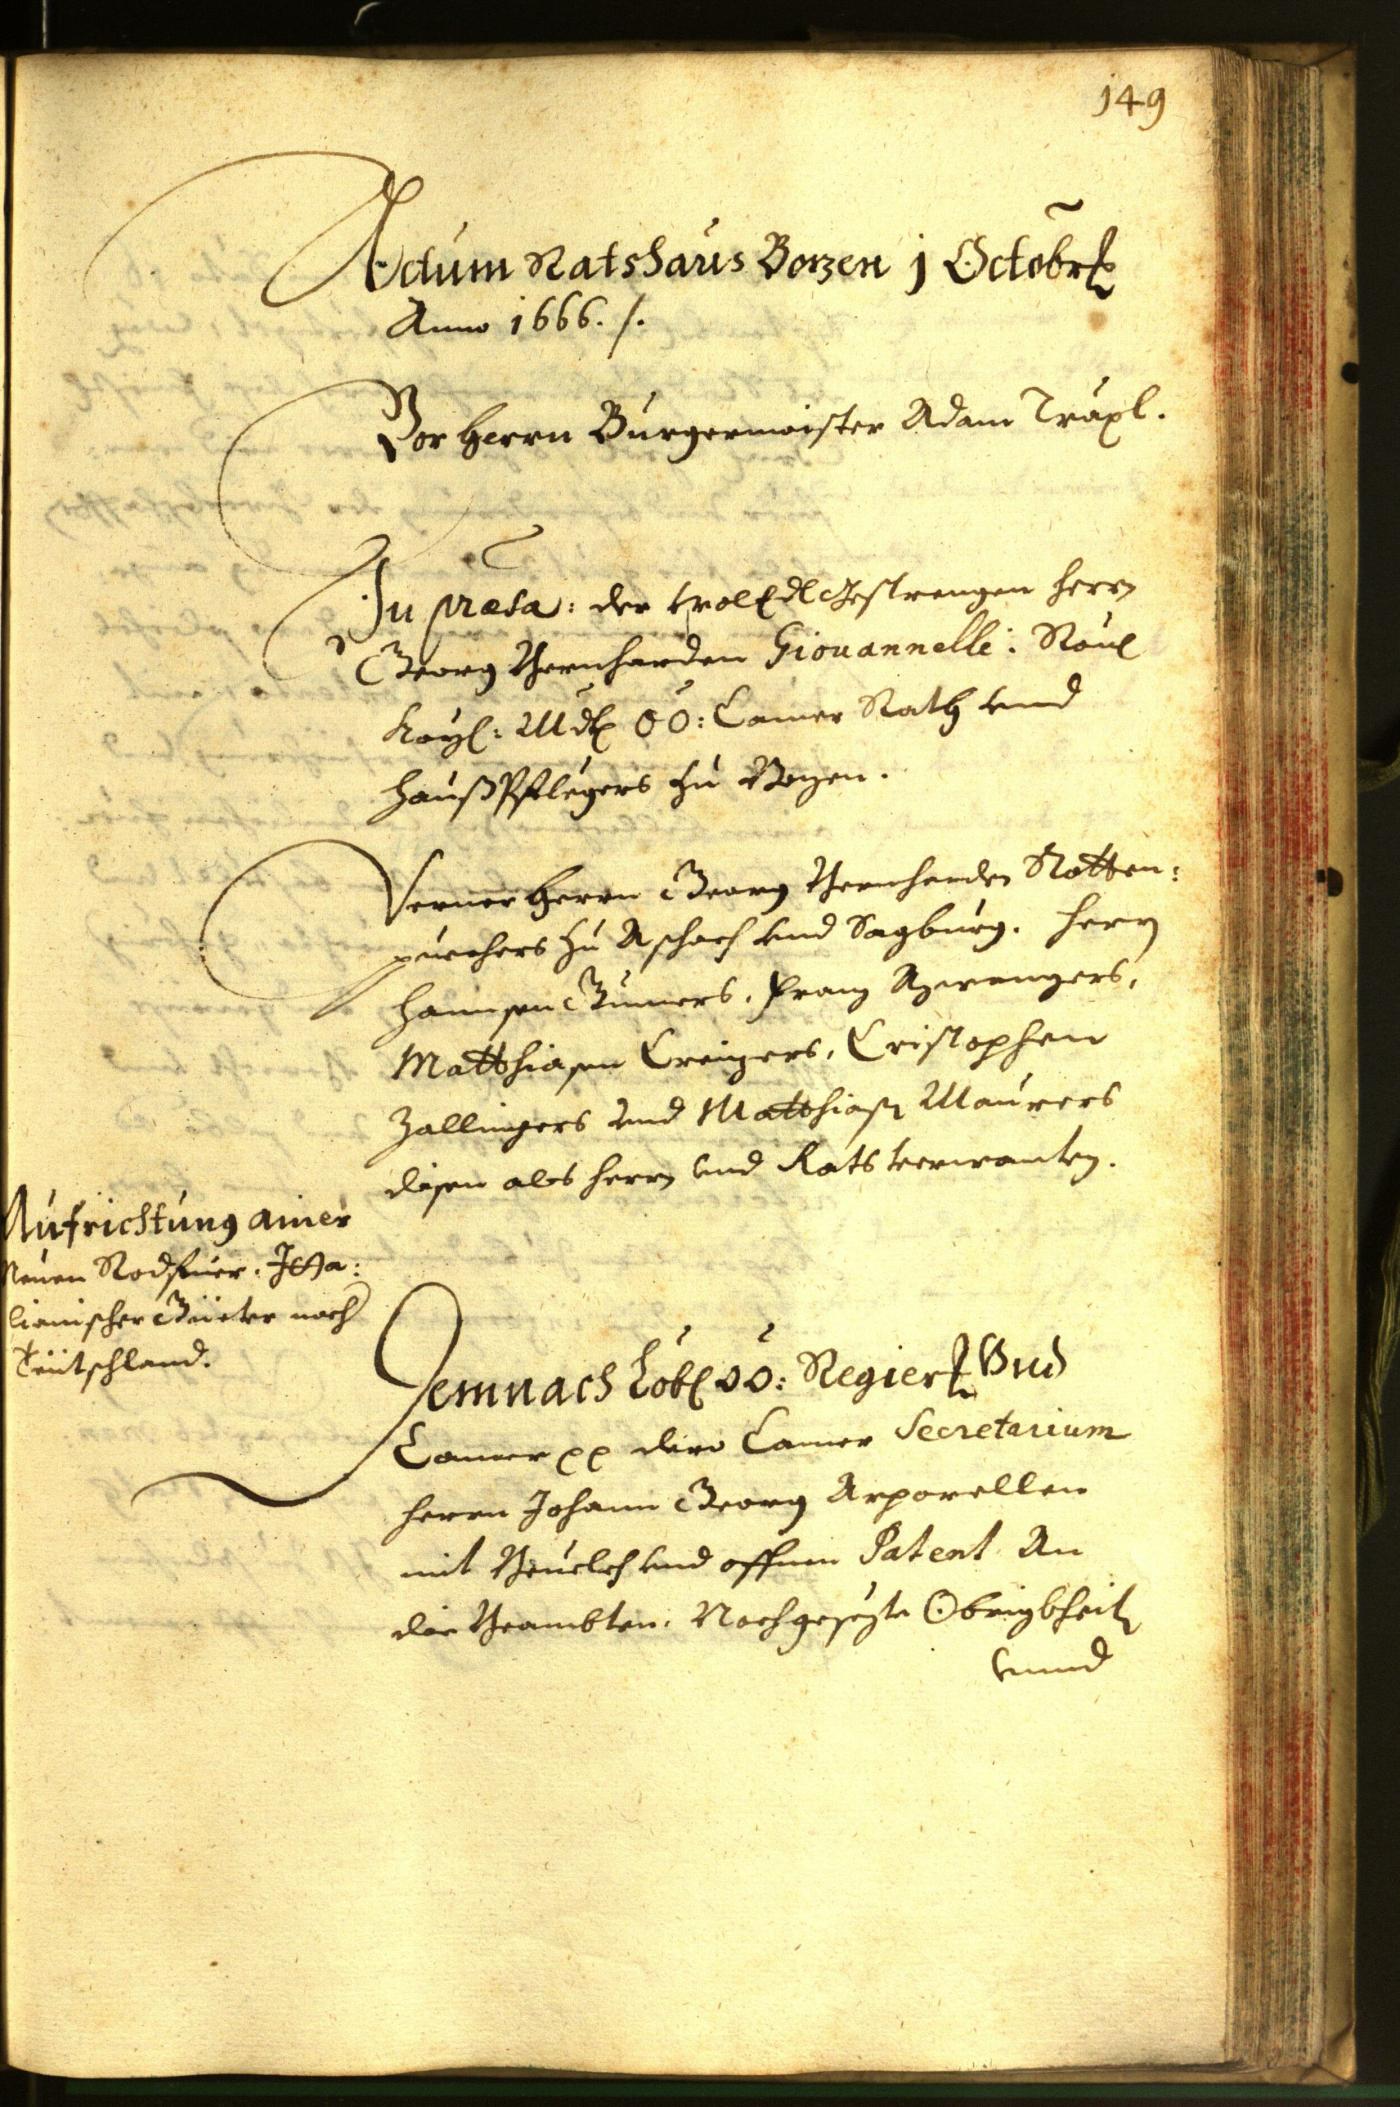 149
Actum Ratshaus Bozen j Octobr
Anno 1666. /.
Vor herrn Burgermaister Adam Träxl.
In præsa: der wol Edl Gestrengen herrn
Georg Bernharden Giouannelli. Röml
Kaÿs: Mdt OÖ: Camer Rath vnd
Hauß Pflegers zu Bozen.
Verner herrn Georg Bernharden Rotten:
puechers zu Aschach vnd Sagburg. herrn
Hannsen Gumers. Franz Azwangers,
Matthiasen Creizers, Cristophen
Zallingers vnd Matthiaß Maurers
disen als herrn vnd Ratsverwanten.
Aufrichtung ainer
Neuen Rodfuer. Itta:
lianischer Güeter nach
Teütschland.
Demnach Lobl OÖ: Regier Vnd
Camer pp dero Camer Secretarium
herrn Johann Georg Arporellen
mit Beuelch vnd offnen Patent An
die Beambten, Nachgesezte Obrigkheit
vnnd